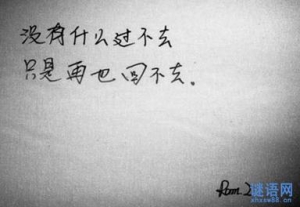 没有什么过不去
只是再也回不去.
谜语网